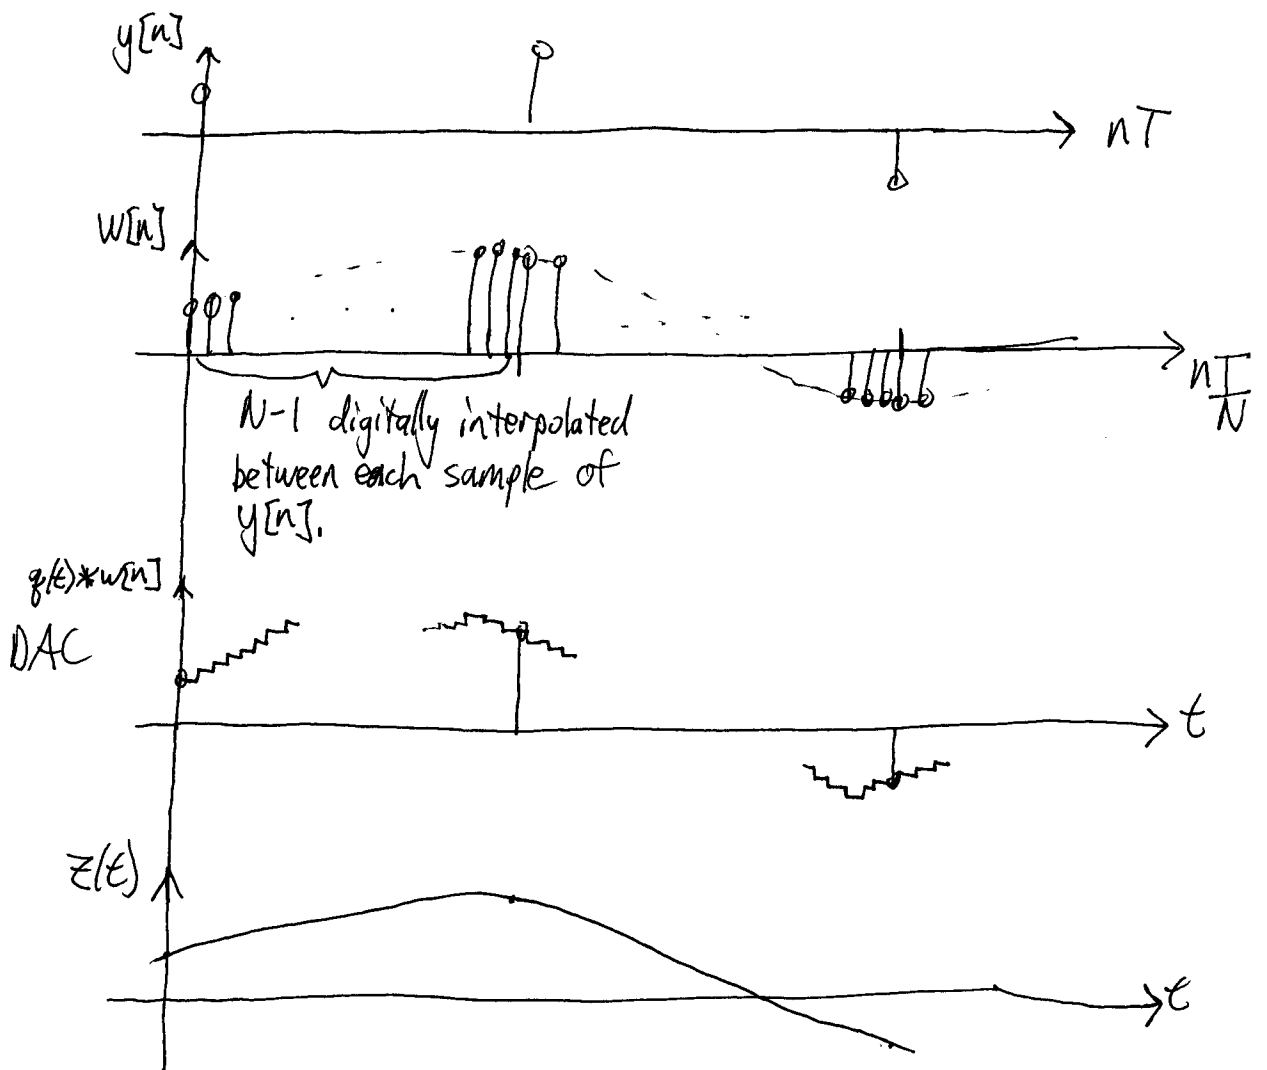 y[n]
nT
W[n]
nT/N
N-1 digitally interpolated
between each sample of
y[n].
q(t)*w[n]
DAC
t
z(t)
t